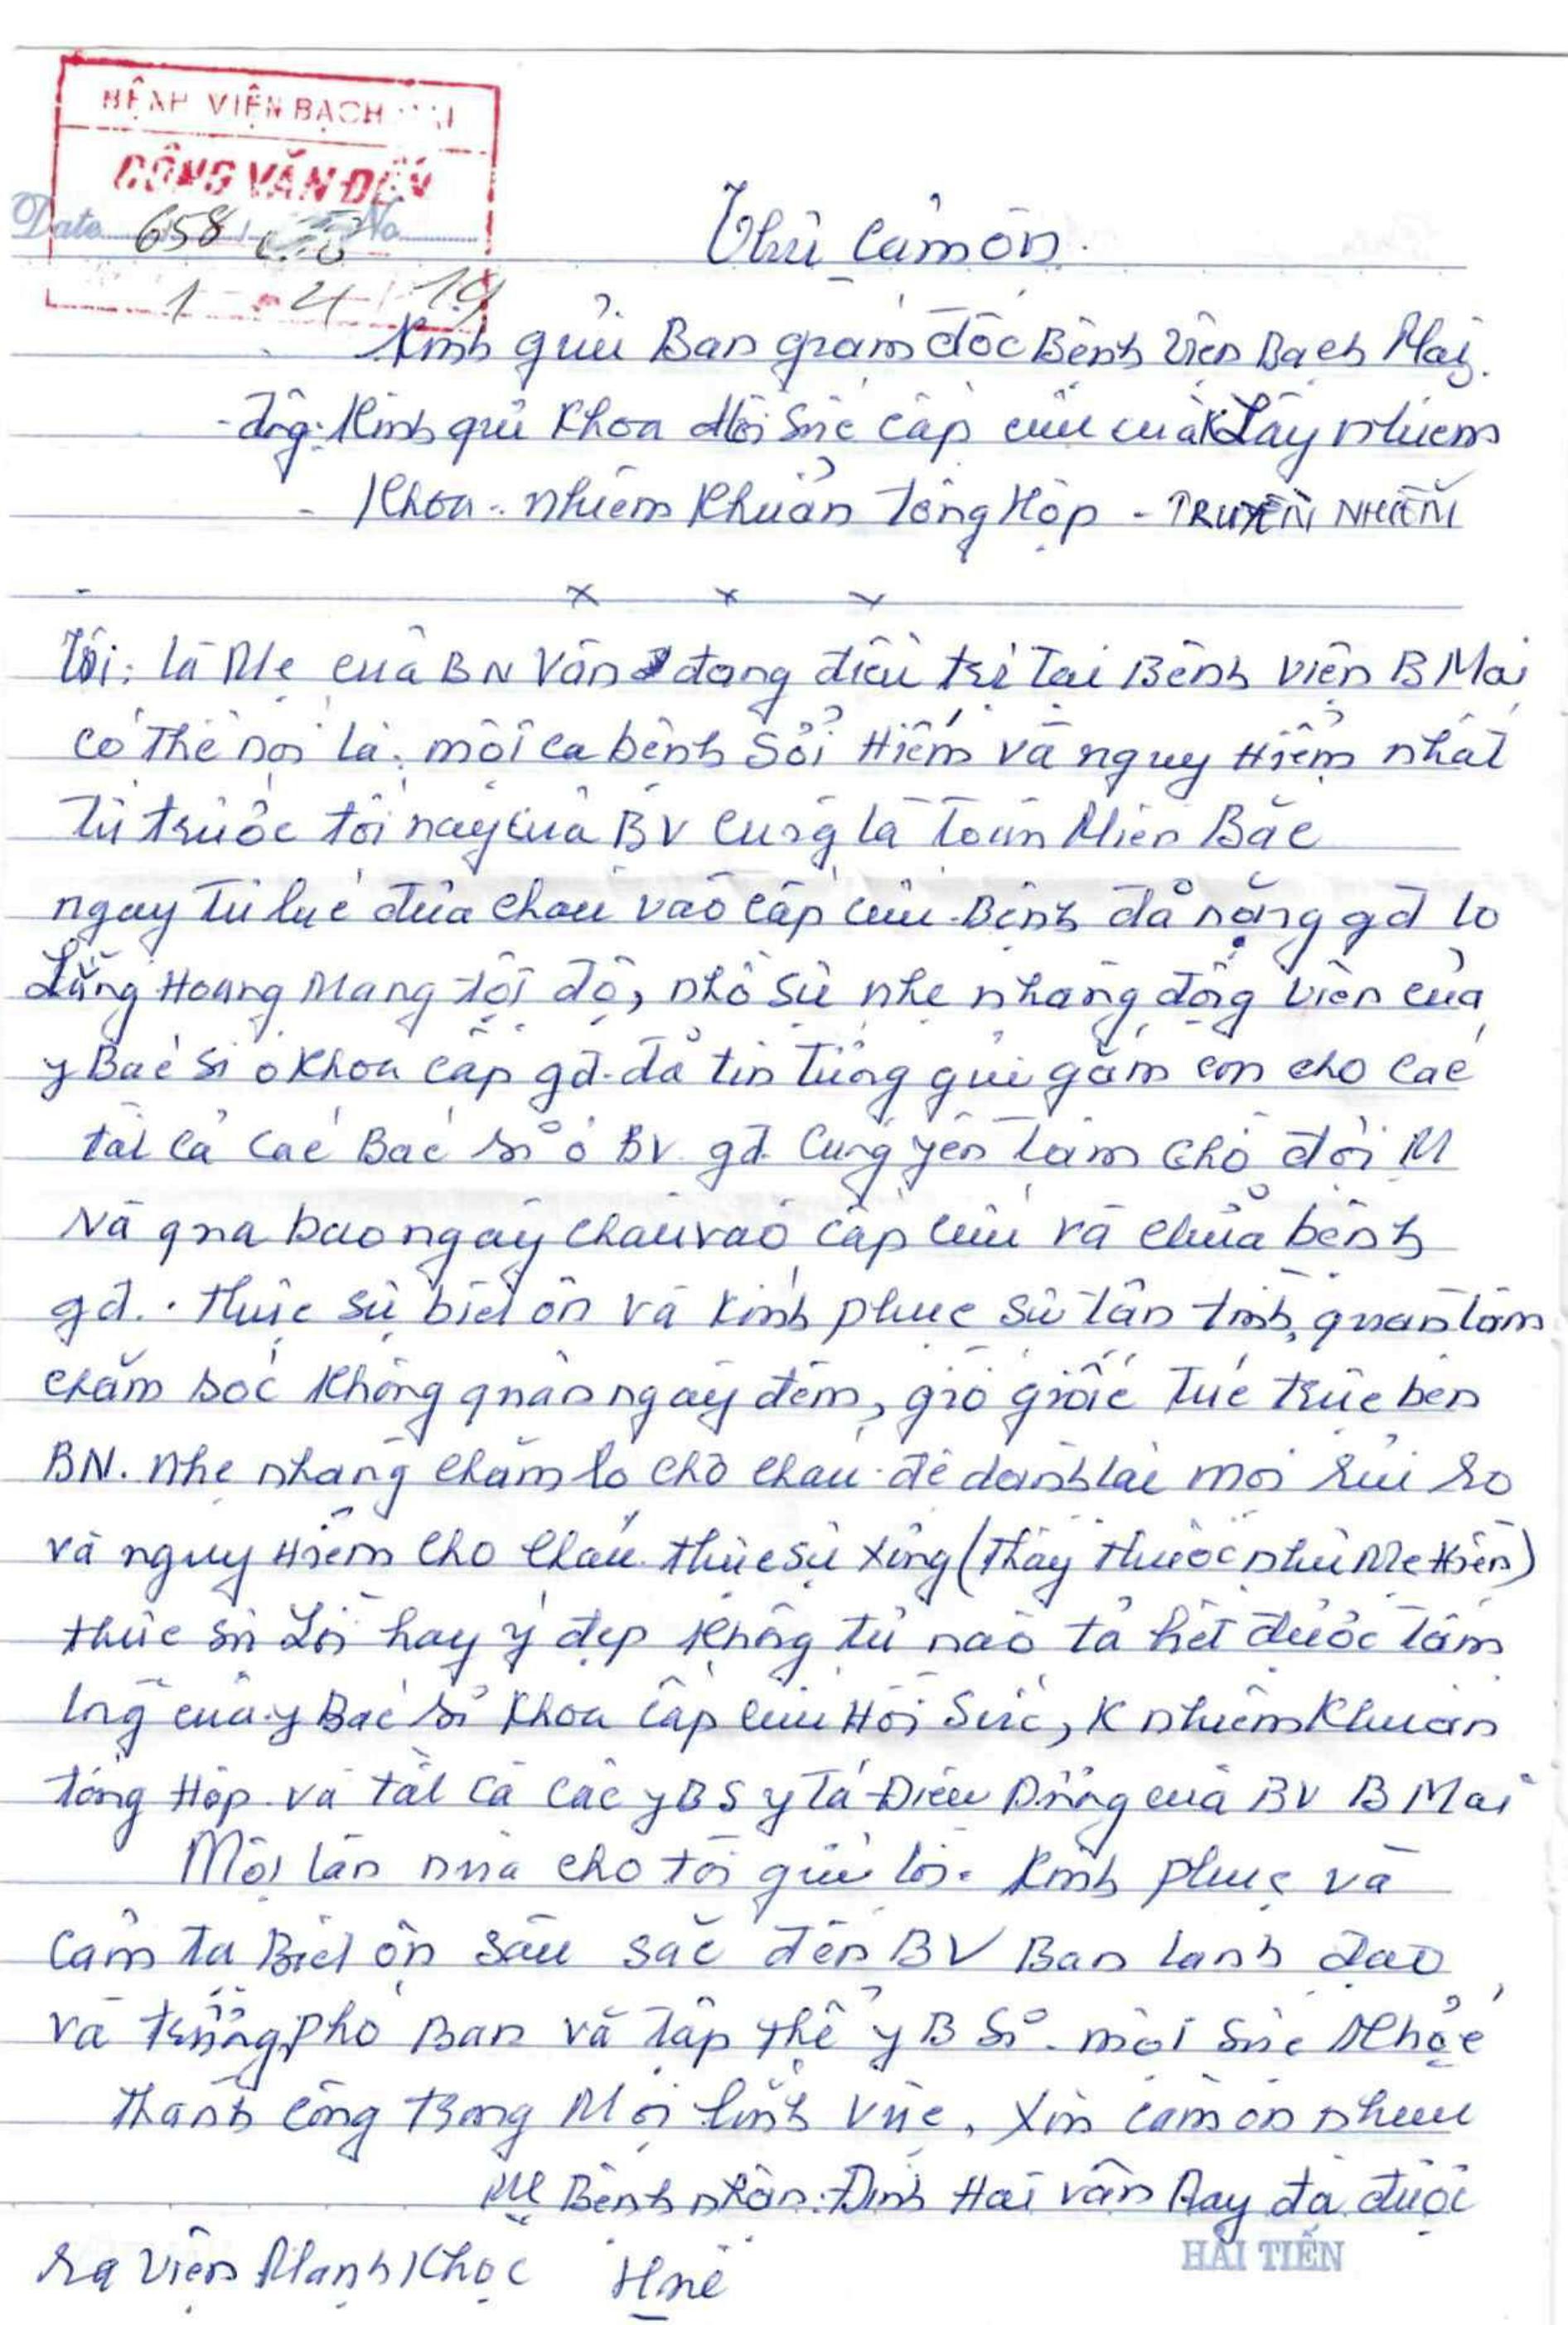 BỆNH VIỆN BẠCH MAI
CÔNG VĂN ĐẾN
Date 658 No
1 - 4 - 19
Thư cảm ơn.
Kính gửi Ban giám đốc Bệnh viện Bạch Mai.
- đồng: Kính gửi Khoa Hồi Sức cấp cứu của K Lây nhiễm
- Khoa - nhiễm Khuẩn Tổng Hợp - TRUYỀN NHIỄM
x x x
Tôi: là Mẹ của BN Vân đang điều trị Tại Bệnh viện B Mai
có thể nói là: một ca bệnh Sởi Hiếm và nguy Hiểm nhất
Từ trước tới nay của BV cũng là toàn Miền Bắc
ngay từ lúc đưa cháu vào cấp cứu. Bệnh đã nặng gđ lo
Lắng Hoang Mang tột độ, nhờ sự nhẹ nhàng động viên của
y Bác sĩ ở Khoa cấp gđ. đã tin tưởng gửi gắm con cho các
tất cả các Bác sĩ ở BV. gđ cũng yên tâm chờ đợi M
Và qua bao ngày cháu vào cấp cứu và chữa bệnh
gđ. thực sự biết ơn và kính phục sự tận tình, quan tâm
chăm sóc không quản ngày đêm, giờ giấc túc trực bên
BN. nhẹ nhàng chăm lo cho cháu. để dành lại mọi rủi ro
và nguy Hiểm cho cháu. thực sự xứng (thầy thuốc như Mẹ Hiền)
thực sự Lời hay ý đẹp không từ nào tả hết được tấm
lòng của y Bác sĩ Khoa cấp cứu Hồi Sức, K nhiễm Khuẩn
tổng Hợp. và tất cả các y BS y tá Điều Dưỡng của BV B Mai
Một lần nữa cho tôi gửi lời. Kính phục và
cảm tạ Biết ơn sâu sắc đến BV Ban lãnh đạo
và trưởng, phó Ban và tập thể y B Sĩ. một sức khỏe
thành công trong Mọi lĩnh vực. Xin cảm ơn nhiều
Mẹ Bệnh nhân: Đinh Hải Vân Nay đã được
HẢI TIẾN
ra viện Mạnh Khỏe Huê